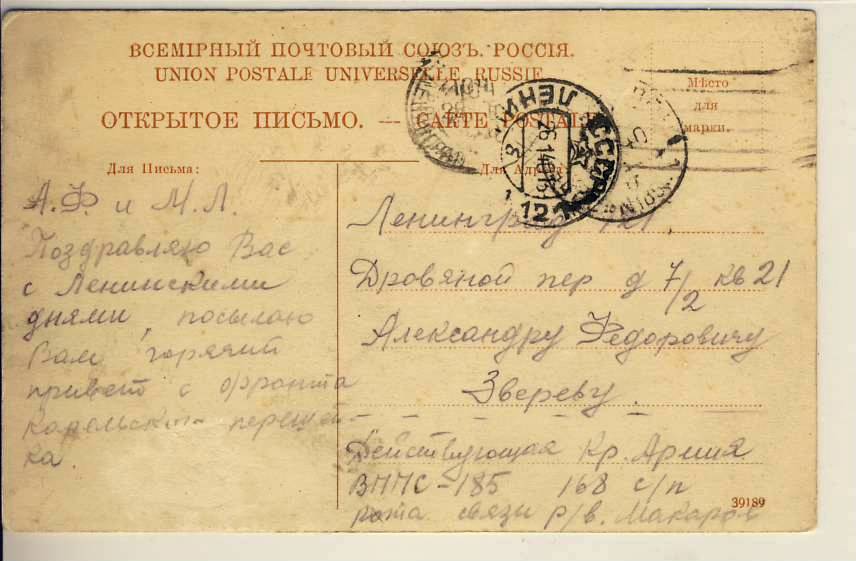 ВСЕМІРНЫЙ ПОЧТОВЫЙ СОЮЗЪ. РОССІЯ.
UNION POSTALE UNIVERSELLE. RUSSIE
ОТКРЫТОЕ ПИСЬМО. — CARTE POSTALE
Мѣсто
для
марки.
ЛЕНИН
СССР
26.1.40
121
Для Письма:
А.Ф. и М.Л.
Поздравляю Вас
с Ленинскими
днями, посылаю
Вам горячий
привет с фронта
Карельского перешей-
ка.
Для
Ленинград 121
Дровяной пер д 7/2 кв 21
Александру Федоровичу
Звереву.
Действующая Кр. Армия
ВППС-185 168 с/п
рота связи р/в. Макаров
39189